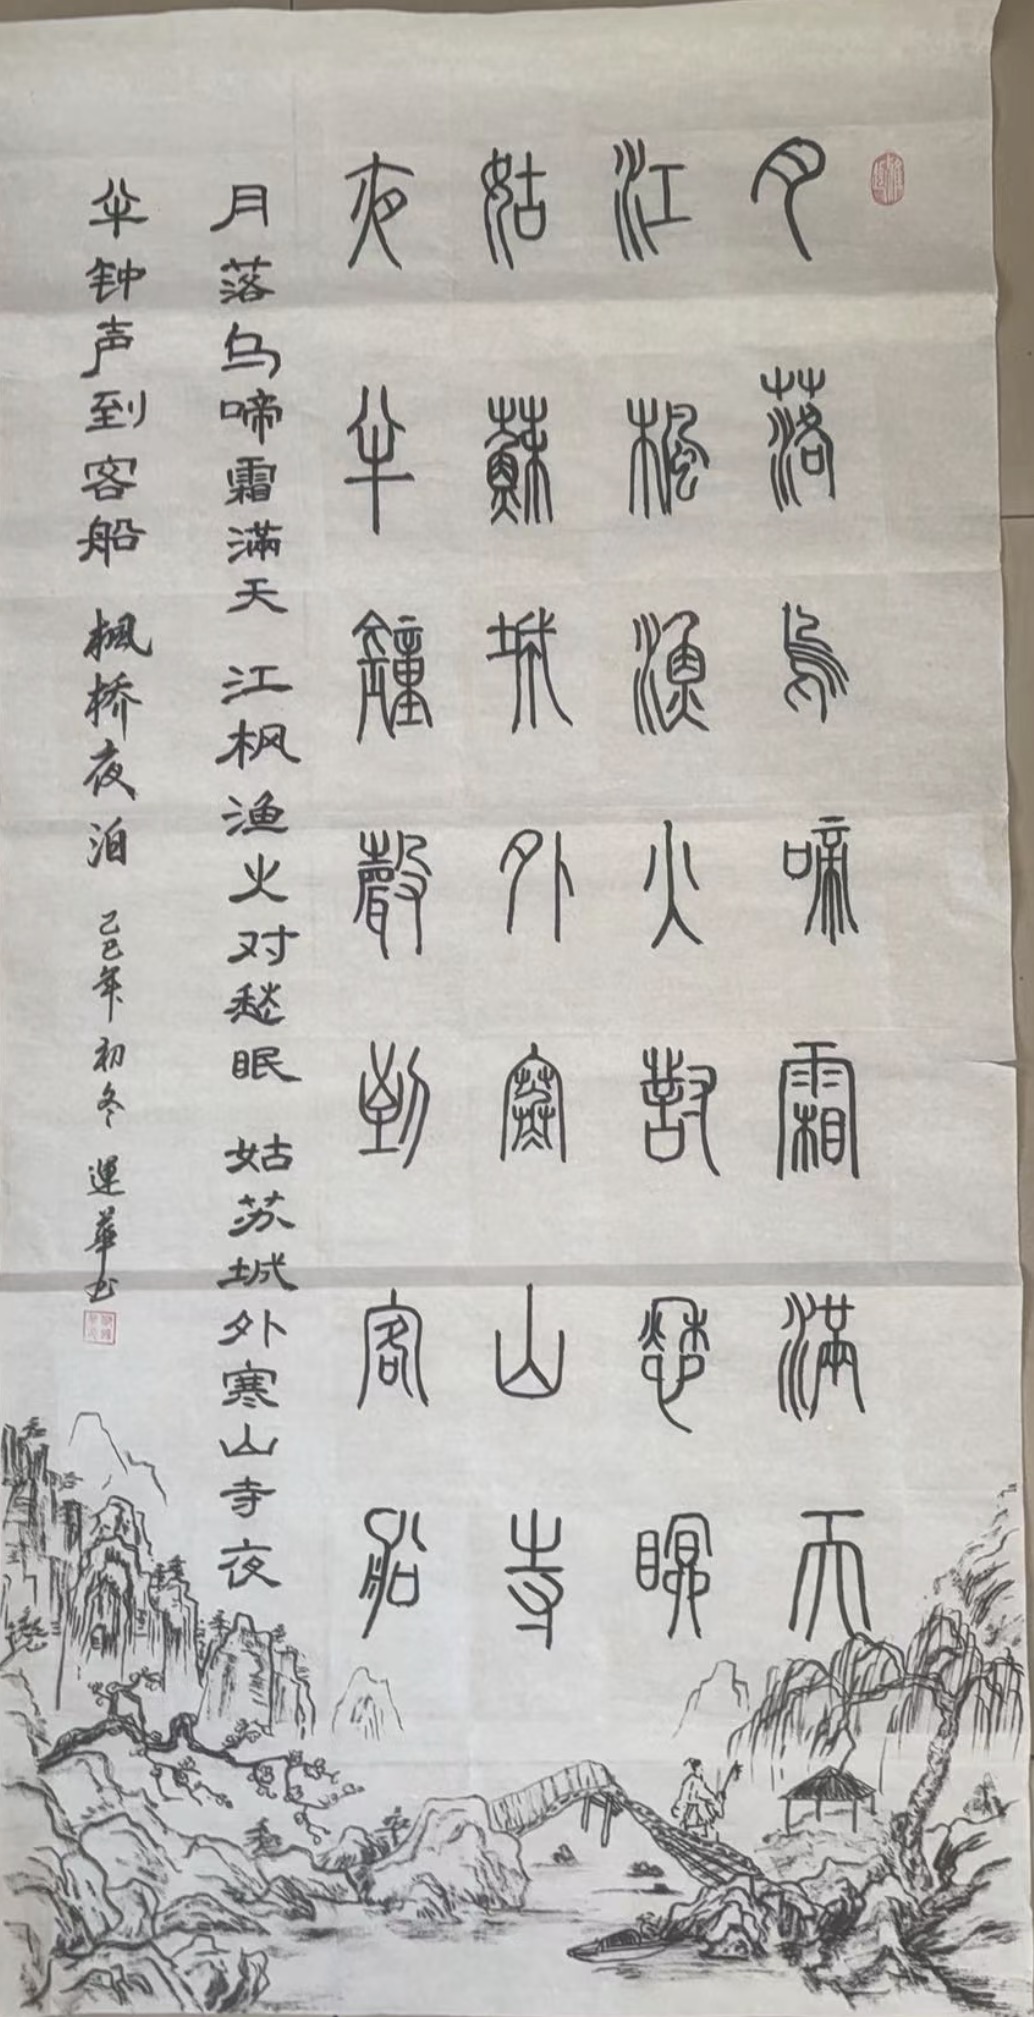 月落烏啼霜滿天
江楓漁火對愁眠
姑蘇城外寒山寺
夜半鐘聲到客船
月落乌啼霜滿天 江枫渔火对愁眠 姑苏城外寒山寺夜
半钟声到客船 楓桥夜泊 己巳年初冬 運華书